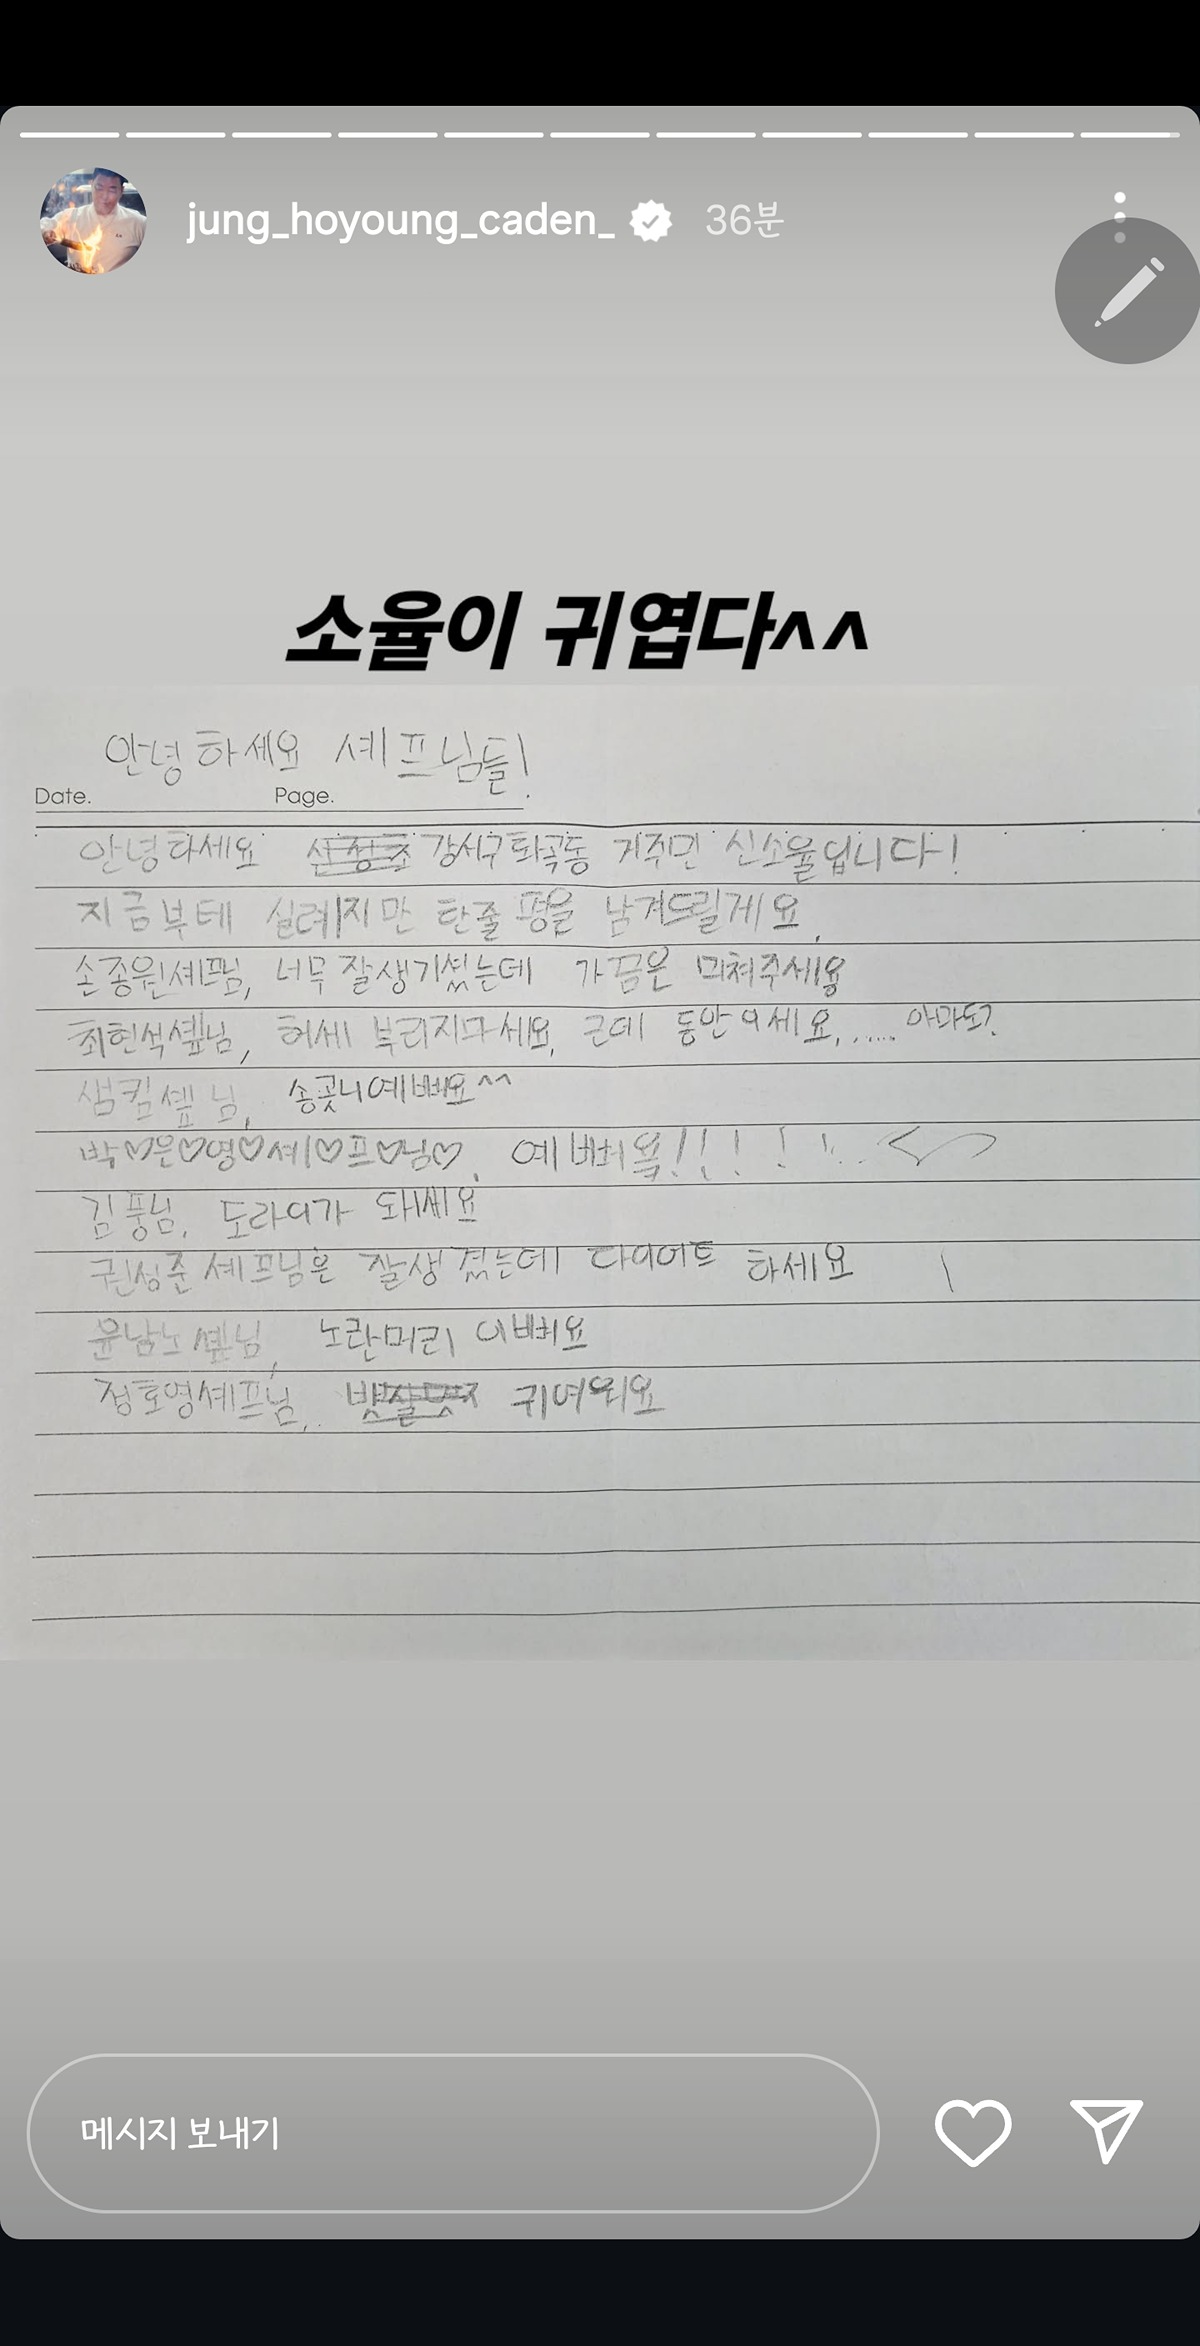 jung_hoyoung_caden_ 36분
소율이 귀엽다^^
안녕하세요 셰프님들!
Date. Page.
안녕하세요 강서구 화곡동 거주민 신소율입니다!
지금부테 실례지만 한줄평을 남겨드릴게요.
손종원셰프님, 너무 잘생기셨는데 가끔은 미쳐주세용
최현석셒님, 허세 부리지마세요, 근데 동안이세요...... 아마도?
샘킴셒님, 송곳니예뻐요^^
박♡은♡영♡셰♡프♡님♡, 예뻐욧!!!!!...
김풍님, 도라이가 돼세요
권성준셰프님은 잘생겼는데 다이어트 하세요
윤남노셒님, 노란머리 이뻐요
정호영셰프님, 귀여워요
메시지 보내기